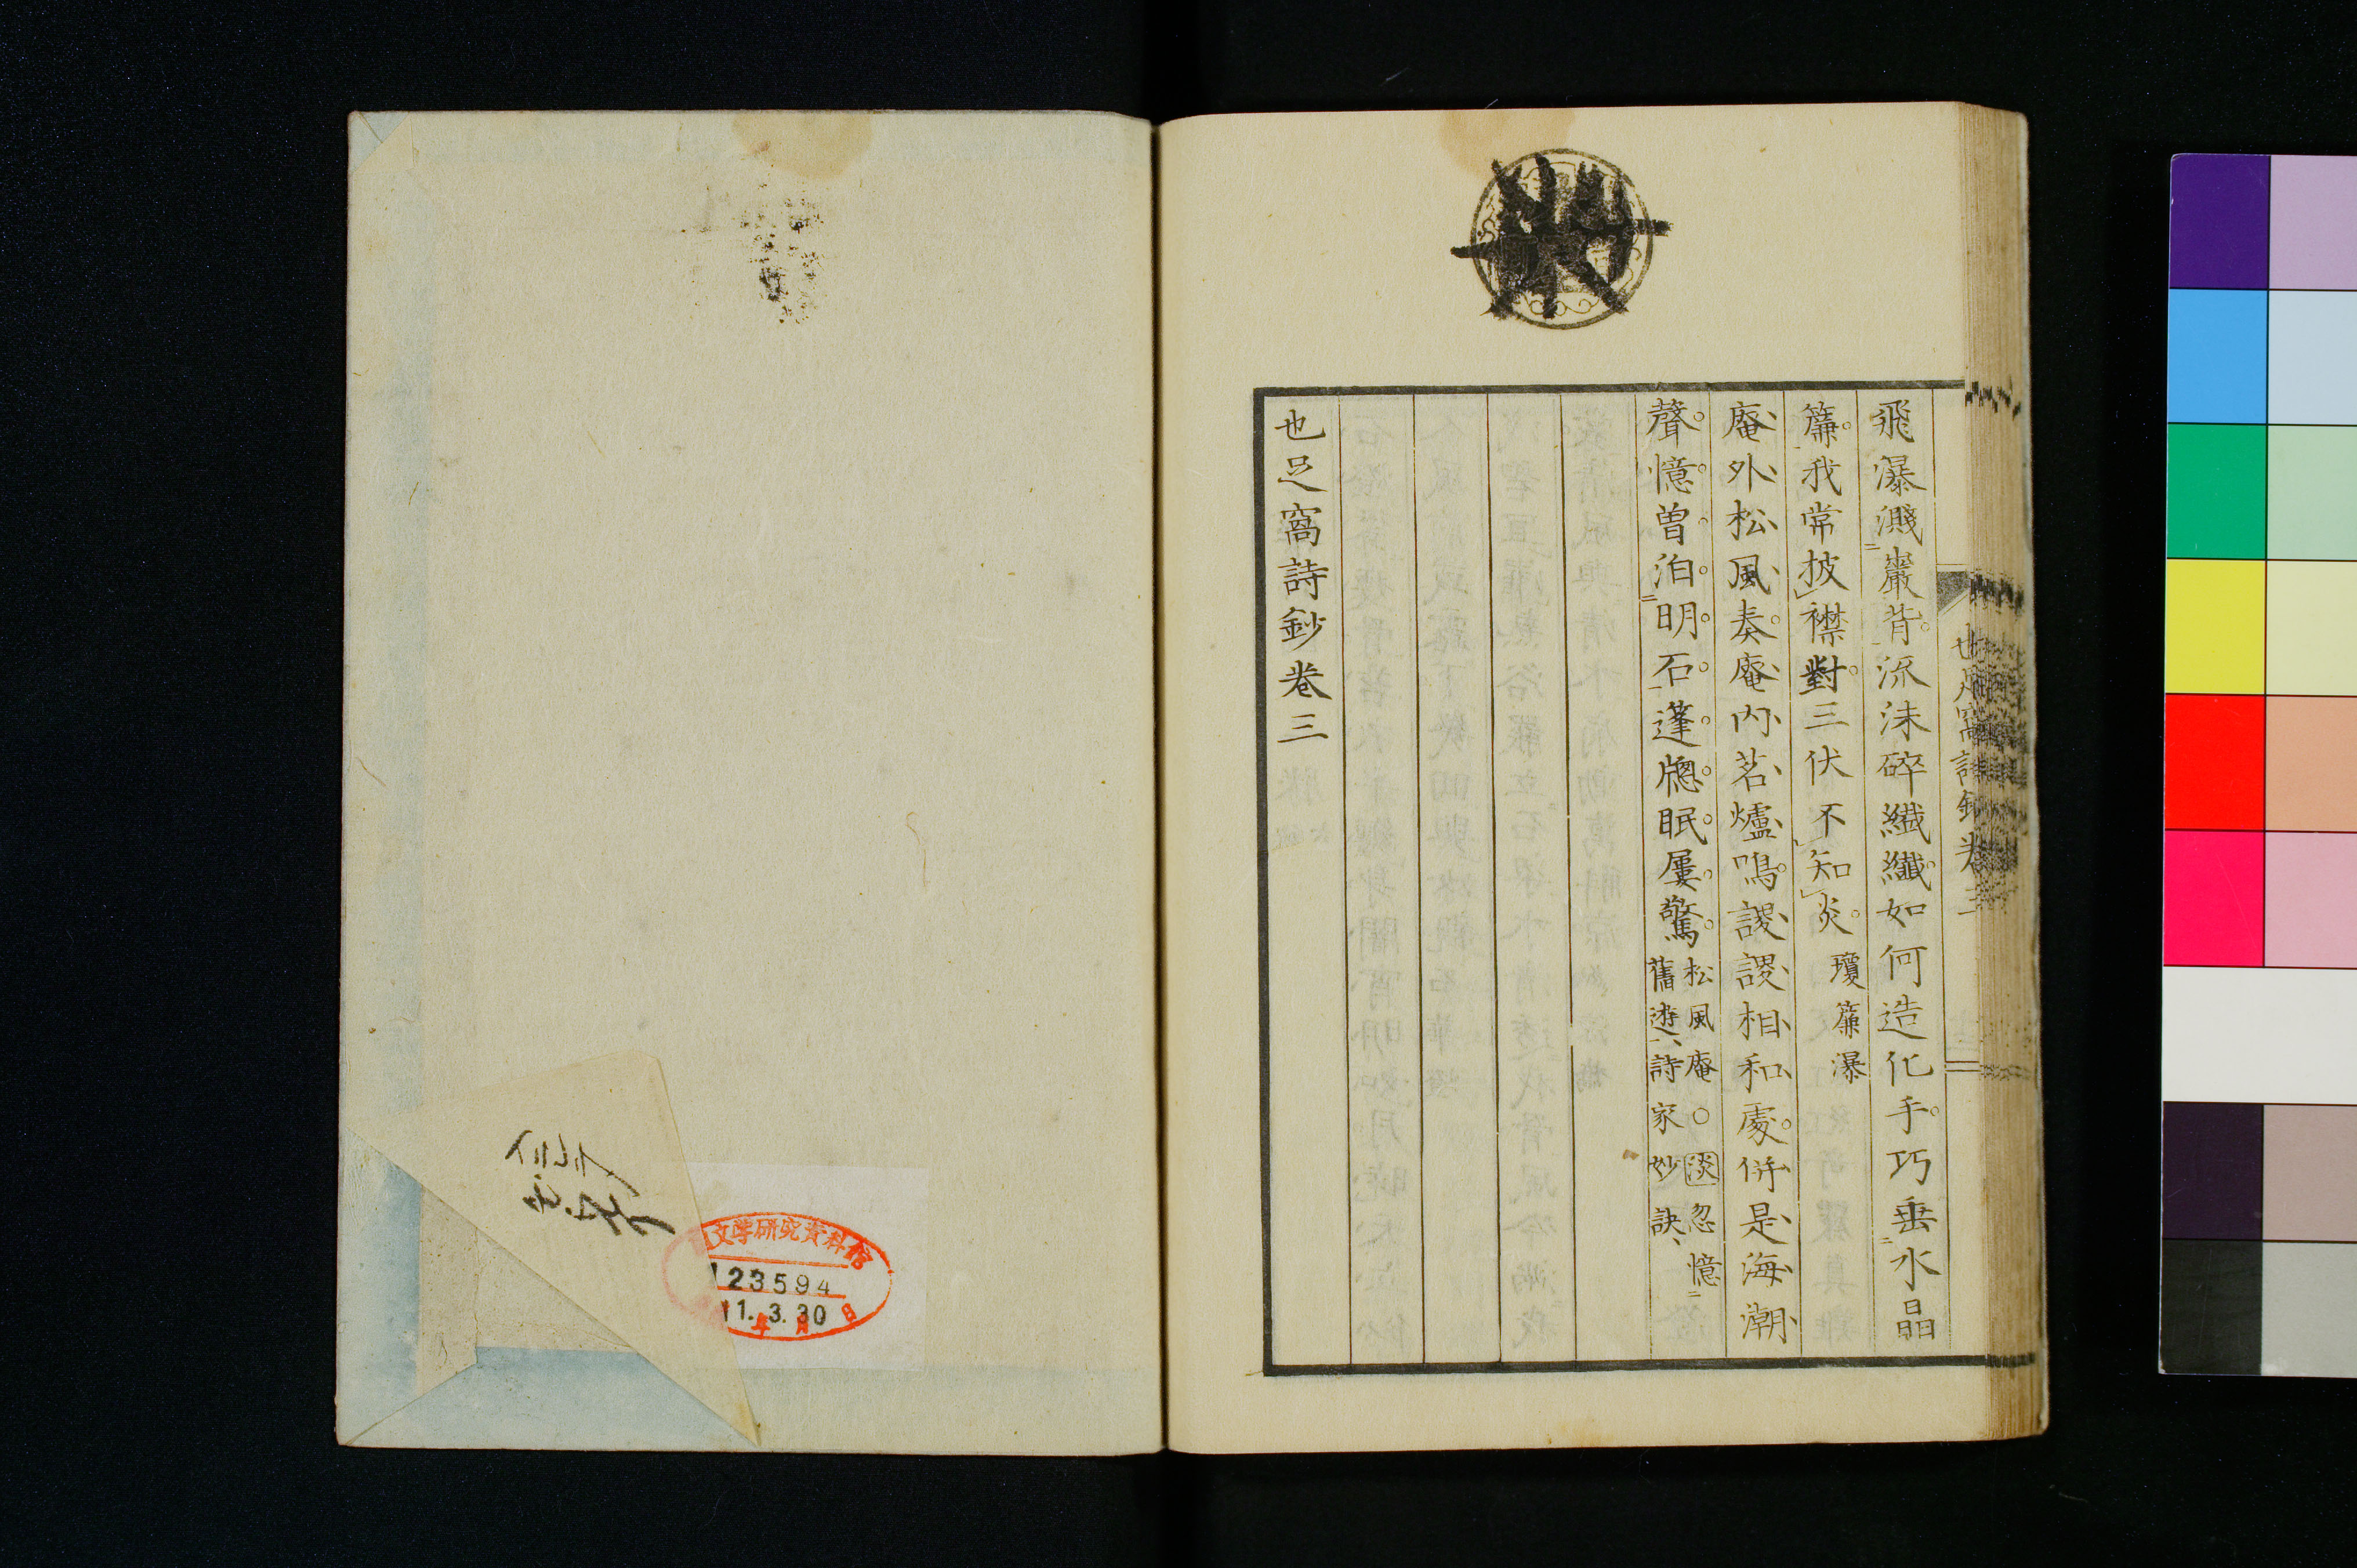 飛瀑濺巖背流沫碎纖纖如何造化手巧垂水晶
簾我常披襟對三伏不知炎 瓊簾瀑
庵外松風奏庵内茗爐鳴謖謖相和處併是海潮
聲憶曽泊明石蓬牕眠屢驚 松風庵○淡忽憶
舊遊詩家妙訣
也足窩詩鈔卷三
也足窩詩鈔卷三
文学研究資料館
123594
11.3.30
年月日